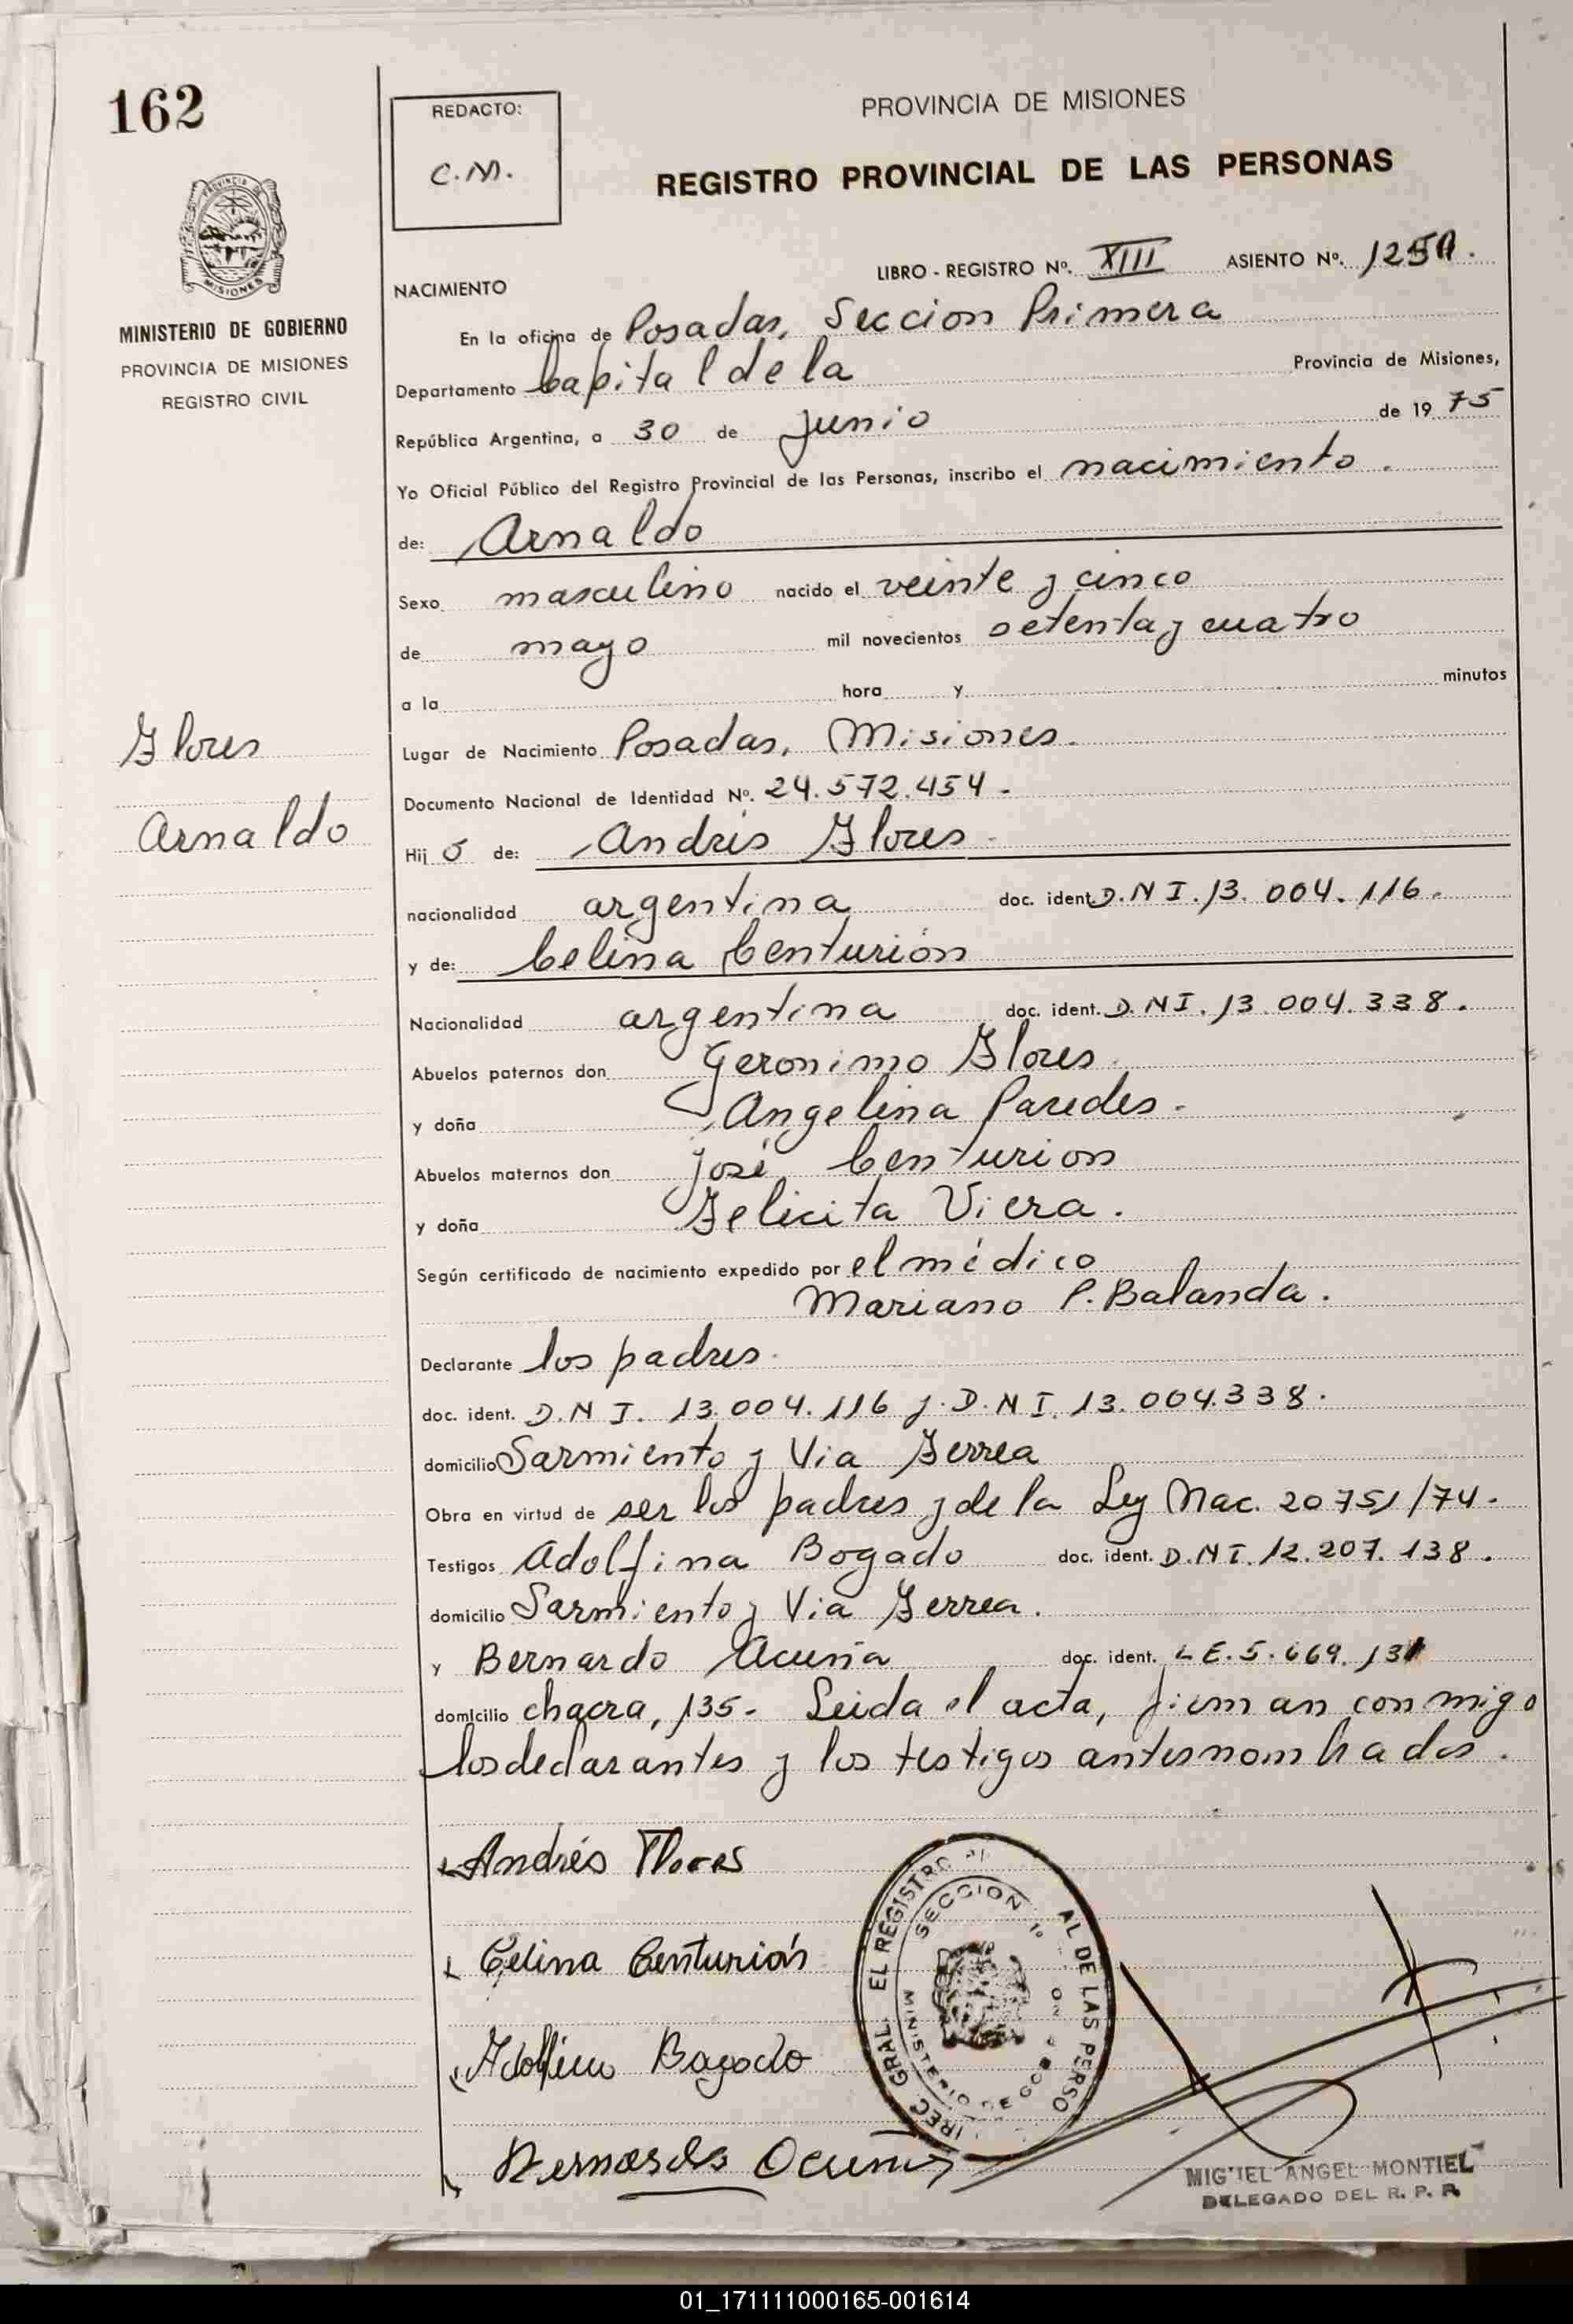 162
REDACTO:
C.M.
PROVINCIA DE MISIONES
REGISTRO PROVINCIAL DE LAS PERSONAS
MISIONES
MINISTERIO DE GOBIERNO
PROVINCIA DE MISIONES
REGISTRO CIVIL
LIBRO - REGISTRO Nº. XIII ASIENTO Nº.
NACIMIENTO
En la oficina de Posadas, Seccion Primera
Departamento Capital de la Provincia de Misiones,
República Argentina, a 30 de Junio de 1975
Yo Oficial Público del Registro Provincial de las Personas, inscribo el nacimiento.
de: Arnaldo
Sexo masculino nacido el veinte y cinco
de mayo mil novecientos setenta y cuatro
a la hora y minutos
Lugar de Nacimiento Posadas, Misiones.
Documento Nacional de Identidad Nº. 24.572.454.
Flores
Arnaldo
Hijo de: Andrés Flores.
nacionalidad argentina doc. ident. D.N I. 13.004.116.
y de: Celina Centurión
Nacionalidad argentina doc. ident. D.NI. 13.004.338.
Abuelos paternos don Geronimo Flores.
y doña Angelina Paredes.
Abuelos maternos don José Centurion
y doña Felicita Viera.
Según certificado de nacimiento expedido por el médico
Mariano P. Balanda.
Declarante los padres.
doc. ident. D.N I. 13.004.116 y D.N I. 13.004.338.
domicilio Sarmiento y Via Ferrea
Obra en virtud de ser los padres y de la Ley Nac. 20751/74.
Testigos Adolfina Bogado doc. ident. D.NI. 12.207.138.
domicilio Sarmiento y Via Ferrea.
y Bernardo Acuña doc. ident. L E. 5.669.131
domicilio chacra, 135. Leida el acta, firman conmigo
los declarantes y los testigos antesnombrados.
Andrés Flores
Celina Centurión
Adolfina Bogado
Bernardo Acuña
SECCION 1º
MINISTERIO DE GOB
MIGUEL ANGEL MONTIEL
DELEGADO DEL R. P. P.
01_171111000165-001614